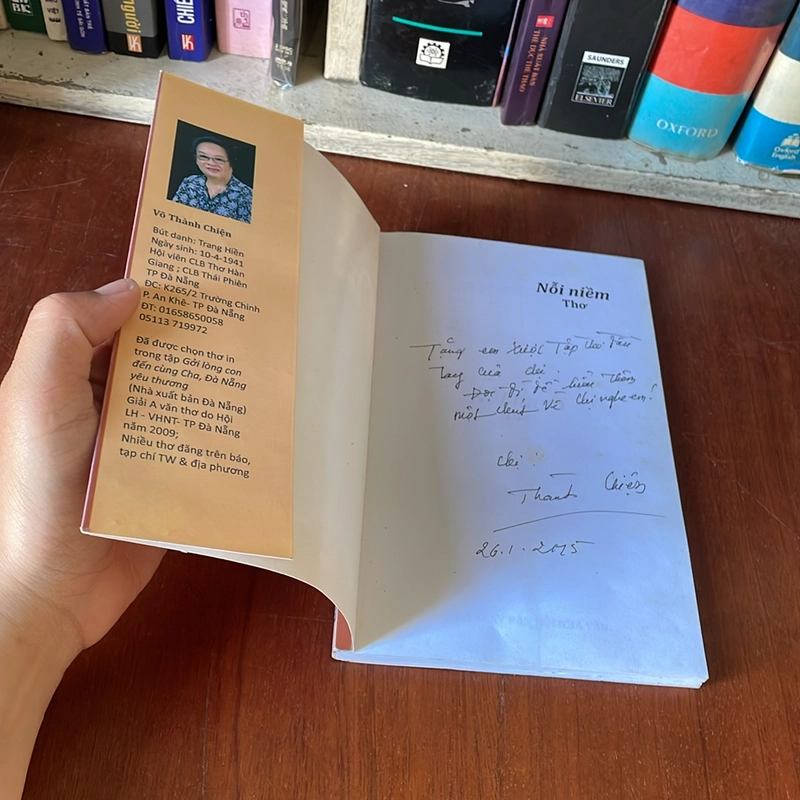 NHÀ XUẤT BẢN
THỂ DỤC THỂ THAO
SAUNDERS
ELSEVIER
OXFORD
Oxford
English
Võ Thành Chiện
Bút danh: Trang Hiền
Ngày sinh: 10-4-1941
Hội viên CLB Thơ Hàn
Giang ; CLB Thái Phiên
TP Đà Nẵng
ĐC: K265/2 Trường Chinh
P. An Khê- TP Đà Nẵng
ĐT: 01658650058
05113 719972
Đã được chọn thơ in
trong tập Gởi lòng con
đến cùng Cha, Đà Nẵng
yêu thương
(Nhà xuất bản Đà Nẵng)
Giải A văn thơ do Hội
LH - VHNT- TP Đà Nẵng
năm 2009;
Nhiều thơ đăng trên báo,
tạp chí TW & địa phương
Nỗi niềm
Thơ
Tặng em Tập thơ đầu
tay của chị.
Đọc để hiểu thêm
một chút về chị nghe em!
chị
Thành Chiện
26.1.2015